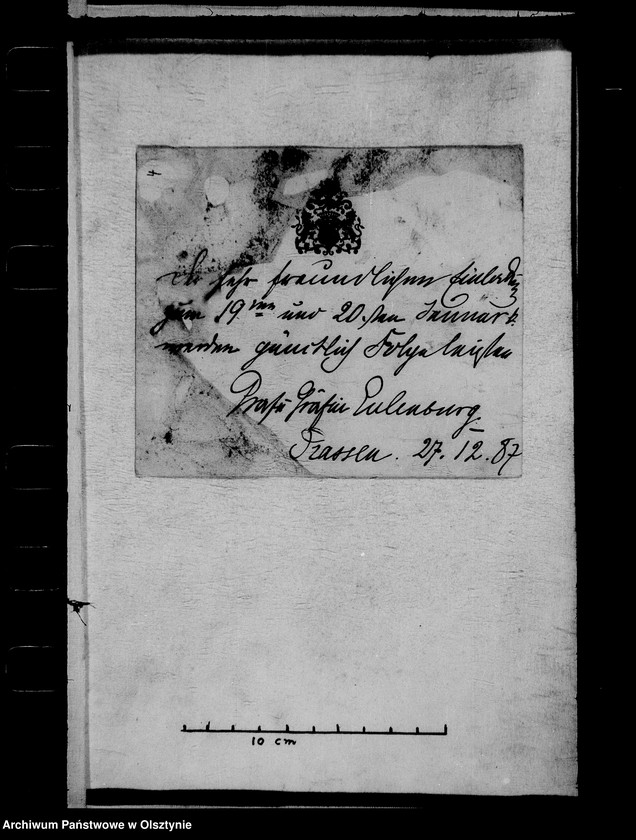 Der sehr freundlichen Einladung
zum 19ten und 20sten Januar k.
werden pünktlich Folge leisten
Graf u Gräfin Eulenburg
Prassen. 27. 12. 87
10 cm
Archiwum Państwowe w Olsztynie